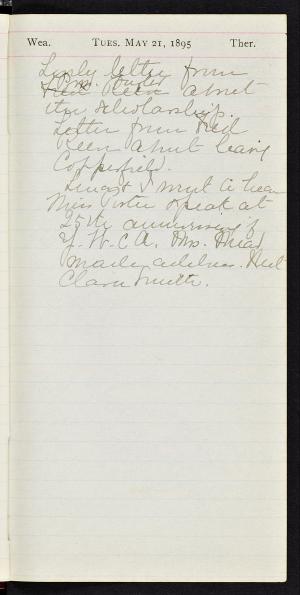 Wea. TUES. MAY 21, 1895 Ther.
Lovely letter from
Fred Keen about
the scholarship.
Letter from Fred
Keen about leaving
Copperfield.
I went to hear
Miss speak at
25th anniversary of
Y. W. C A. Mrs.
made address. Met
Clara Smith.